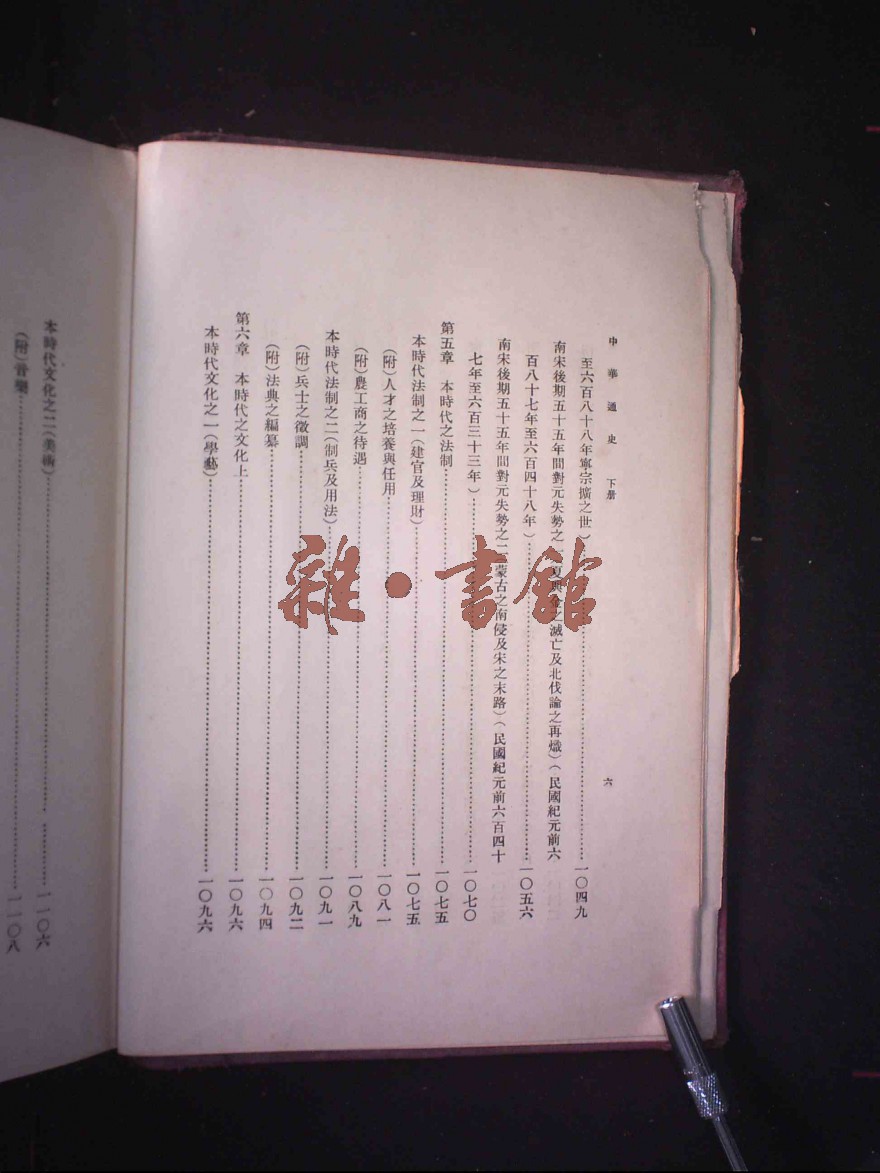 中華通史 下册 六
至六百八十八年寧宗擴之世）一〇四九
南宋後期五十五年間對元失勢之一 夏與金之滅亡及北伐論之再熾）（民國紀元前六
百八十七年至六百四十八年）一〇五六
南宋後期五十五年間對元失勢之二 蒙古之南侵及宋之末路）（民國紀元前六百四十
七年至六百三十三年）一〇七〇
第五章 本時代之法制一〇七五
本時代法制之一（建官及理財）一〇七五
（附）人才之培養與任用一〇八一
（附）農工商之待遇一〇八九
本時代法制之二（制兵及用法）一〇九一
（附）兵士之徵調一〇九二
（附）法典之編纂一〇九四
第六章 本時代之文化上一〇九六
本時代文化之一（學藝）一〇九六
本時代文化之二（美術）一一〇六
（附）音樂一一〇八
雜·書館